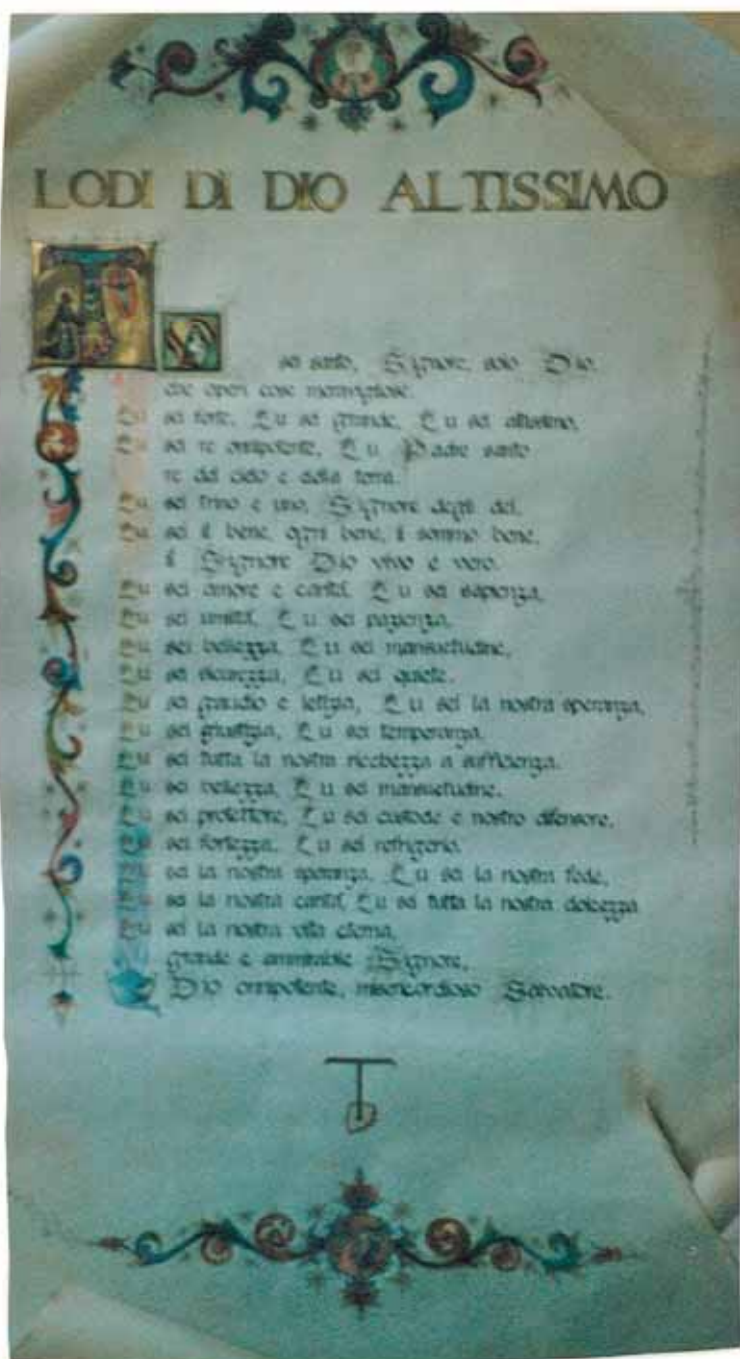 LODI DI DIO ALTISSIMO
TU sei santo, Signore, solo Dio,
che operi cose meravigliose.
Tu sei forte, Tu sei grande, Tu sei altissimo,
Tu sei re onnipotente, Tu Padre santo
re del cielo e della terra.
Tu sei trino e uno, Signore degli dei,
Tu sei il bene, ogni bene, il sommo bene,
il Signore Dio vivo e vero.
Tu sei amore e carità, Tu sei sapienza,
Tu sei umiltà, Tu sei pazienza,
Tu sei bellezza, Tu sei mansuetudine,
Tu sei sicurezza, Tu sei quiete.
Tu sei gaudio e letizia, Tu sei la nostra speranza,
Tu sei giustizia, Tu sei temperanza,
Tu sei tutta la nostra ricchezza a sufficienza.
Tu sei bellezza, Tu sei mansuetudine.
Tu sei protettore, Tu sei custode e nostro difensore,
Tu sei fortezza, Tu sei refrigerio.
Tu sei la nostra speranza, Tu sei la nostra fede,
Tu sei la nostra carità, Tu sei tutta la nostra dolcezza
Tu sei la nostra vita eterna,
grande e ammirabile Signore,
Dio onnipotente, misericordioso Salvatore.